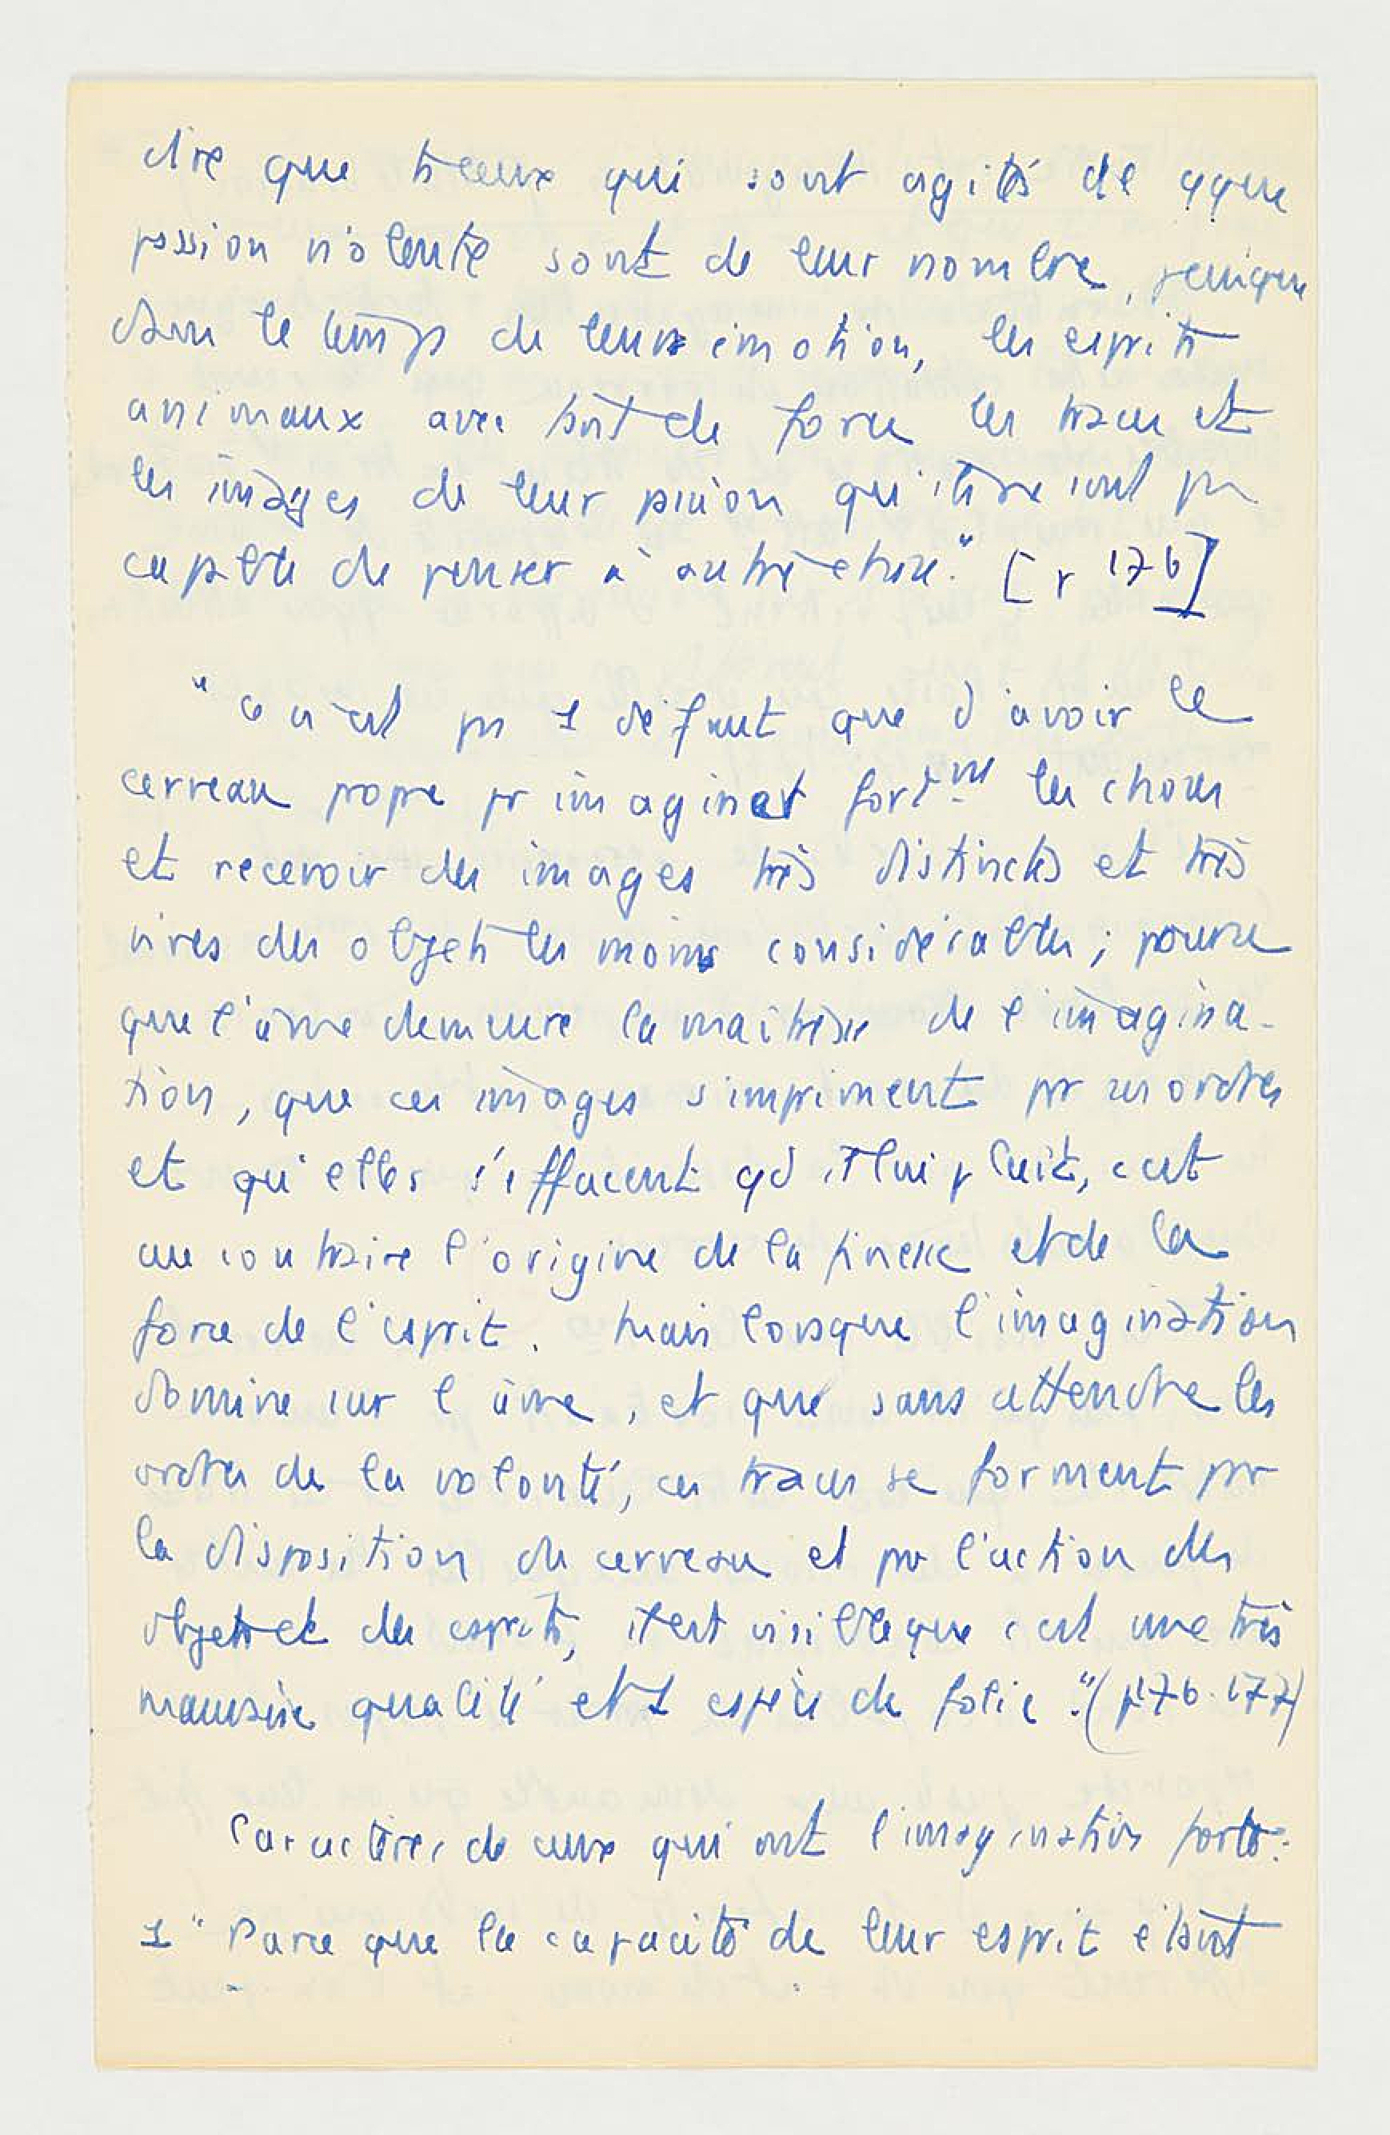 dire que ts ceux qui sont agités de qque
passion violente sont de leur nombre, puisque
dans le temps de leur émotion, les esprits
animaux avec tant de force les traces et
les images de leur passion qu'ils ne sont pas
capables de penser à autre chose." [p 176]
"Ce n'est pas 1 défaut que d'avoir le
cerveau propre pr imaginer fortmt les choses
et recevoir des images très distinctes et très
vives des objets les moins considérables ; pourvu
que l'âme demeure la maîtresse de l'imagina-
tion, que ces images s'impriment par ses ordres
et qu'elles s'effacent qd il lui plaît, c'est
au contraire l'origine de la finesse et de la
force de l'esprit. Mais lorsque l'imagination
domine sur l'âme, et que sans attendre les
ordres de la volonté, ces traces se forment par
la disposition du cerveau et par l'action des
objets et des esprits, il est visible que c'est une très
mauvaise qualité et 1 espèce de folie." (p176.177)
Caractères de ceux qui ont l'imagination forte :
1 "Parce que la capacité de leur esprit étant